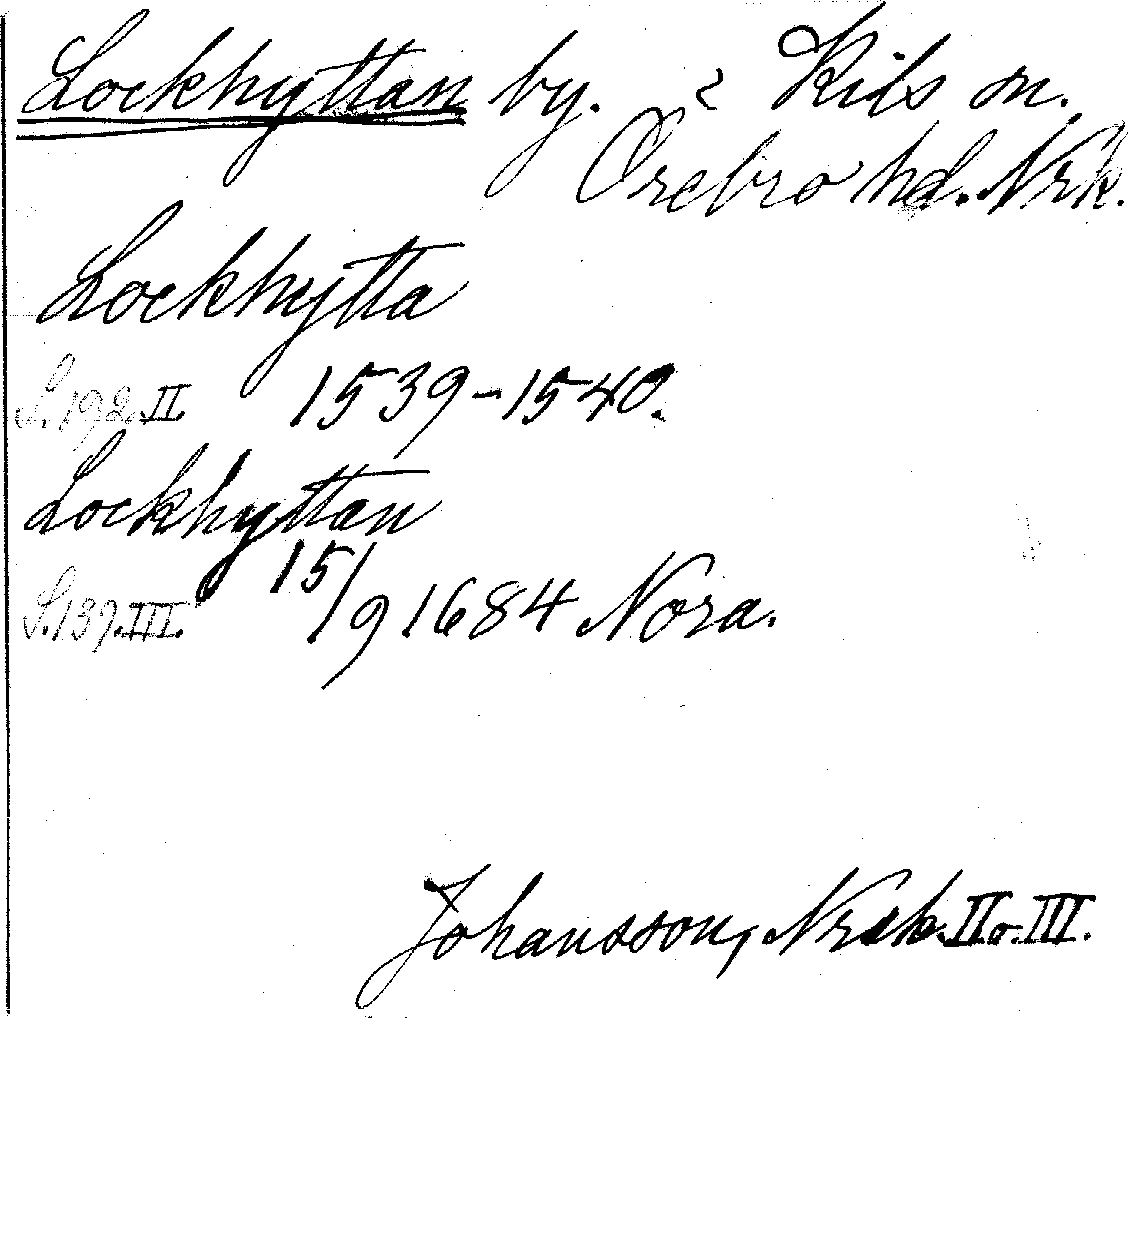 Lockhyttan by. Kils sn.
Örebro hd. Nrk.
Lockhytta
S. 192. II. 1539-1540.
Lockhyttan
S. 139. III. 15/9 1684 Nora.
Johansson, Nrk. II o. III.